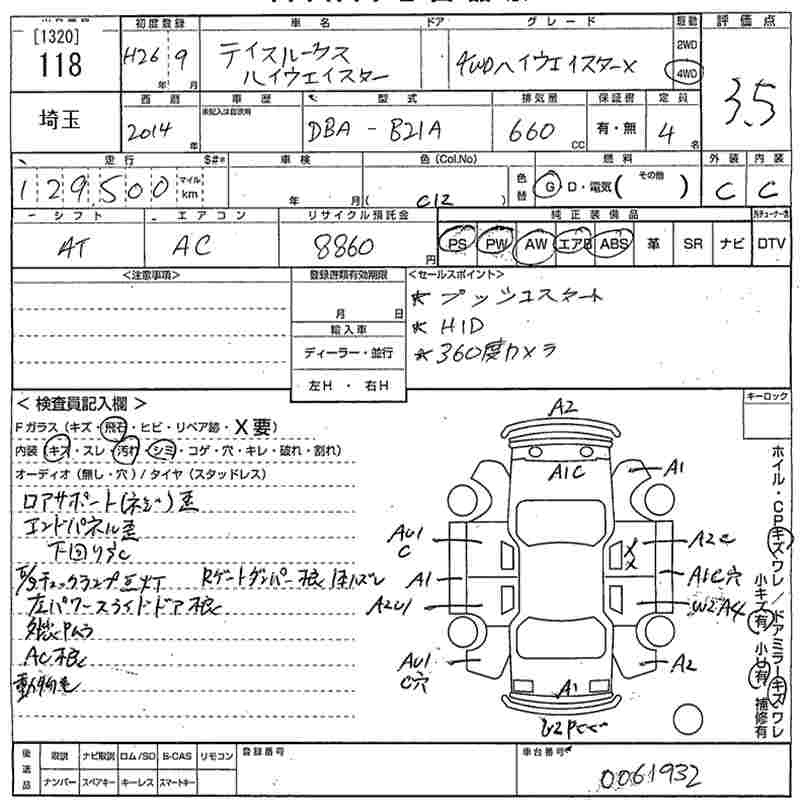 [1320]
118
埼玉
初度登録
H26年9月
車名
デイズルークス
ハイウェイスター
ドア
グレード
4WDハイウェイスターX
駆動
2WD
4WD
評価点
3.5
西暦
2014年
車歴
未記入は自家用
型式
DBA - B21A
排気量
660 CC
保証書
有・無
定員
4名
走行
$#*
129,500
マイル
km
車検
年 月
色(Col.No)
( C12 )
色替
燃料
G D・電気( その他 )
外装
C
内装
C
シフト
AT
エアコン
AC
リサイクル預託金
8860円
純正装備品
PS PW AW エアB ABS 革 SR ナビ
DTV
<注意事項>
登録書類有効期限
月 日
輸入車
ディーラー・並行
左H・右H
<セールスポイント>
★ プッシュスタート
★ HID
★ 360度カメラ
<検査員記入欄>
Fガラス(キズ・飛石・ヒビ・リペア跡・X要)
内装(キズ・スレ・汚れ・シミ・コゲ・穴・キレ・破れ・割れ)
オーディオ(無し・穴)/タイヤ(スタッドレス)
ロアサポート(ネジ)歪
エンドパネル歪
下回りサC
左パワースライドドア
AC
キーロック
A2
A1C
A1
AU1
C
A2
A1
A1C穴
A2U1
W2 A4
AU1
C穴
A2
A1
ホイル・CPキズワレ/ドアミラーキズワレ
小キズ有 小U有 補修有
後送品
取説 ナビ取説 ロム/SD B-CAS リモコン
ナンバー スペアキー キーレス スマートキー
登録番号
車台番号
0061932